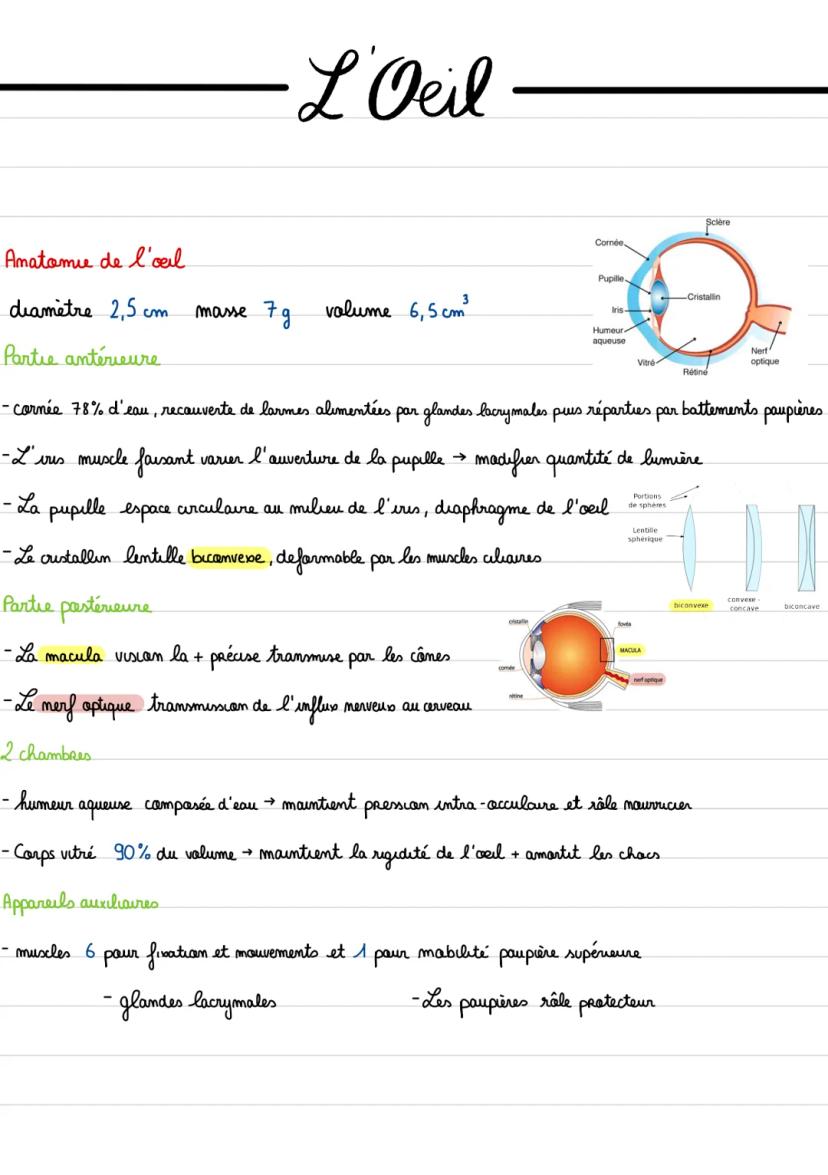 L'Oeil
Anatomie de l'œil
diamètre 2,5 cm masse 7 g volume 6,5 cm³
Partie antérieure
Sclère
Cornée
Pupille
Cristallin
Iris
Humeur
aqueuse
Vitré
Rétine
Nerf
optique
- cornée 78% d'eau, recouverte de larmes alimentées par glandes lacrymales puis réparties par battements paupières
- L'iris muscle faisant varier l'ouverture de la pupille → modifier quantité de lumière
- La pupille espace circulaire au milieu de l'iris, diaphragme de l'oeil
- Le cristallin lentille biconvexe, deformable par les muscles ciliaires
Portions
de sphères
Lentille
sphérique
biconvexe
convexe -
concave
biconcave
Partie postérieure
- La macula vision la + précise transmise par les cônes
- Le nerf optique transmission de l'influx nerveux au cerveau
cristallin
fovéa
MACULA
cornée
nerf optique
rétine
2 chambres
- humeur aqueuse composée d'eau → maintient pression intra-occulaire et rôle nourricier
- Corps vitré 90% du volume → maintient la rigidité de l'oeil + amortit les chocs
Appareils auxiliaires
- muscles 6 pour fixation et mouvements et 1 pour mobilité paupière supérieure
- glandes lacrymales - Les paupières rôle protecteur